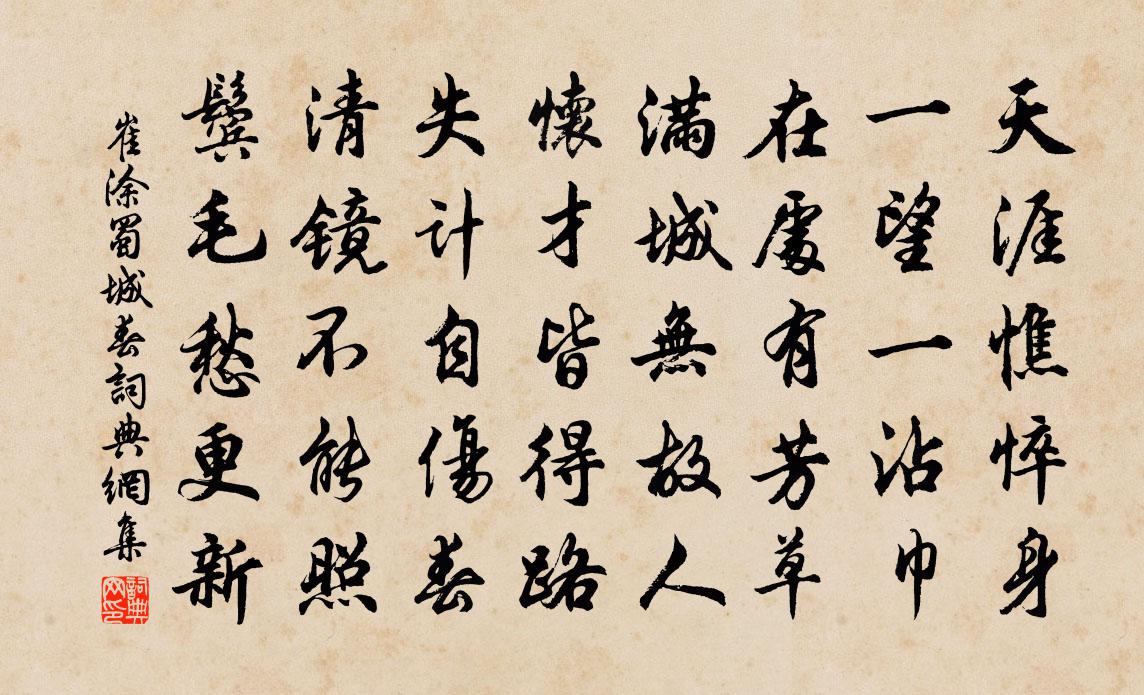 天涯憔悴身
一望一沾巾
在處有芳草
滿城無故人
懷才皆得路
失計自傷春
清鏡不能照
鬓毛愁更新
崔涂蜀城春詞典網集
詞典
网印